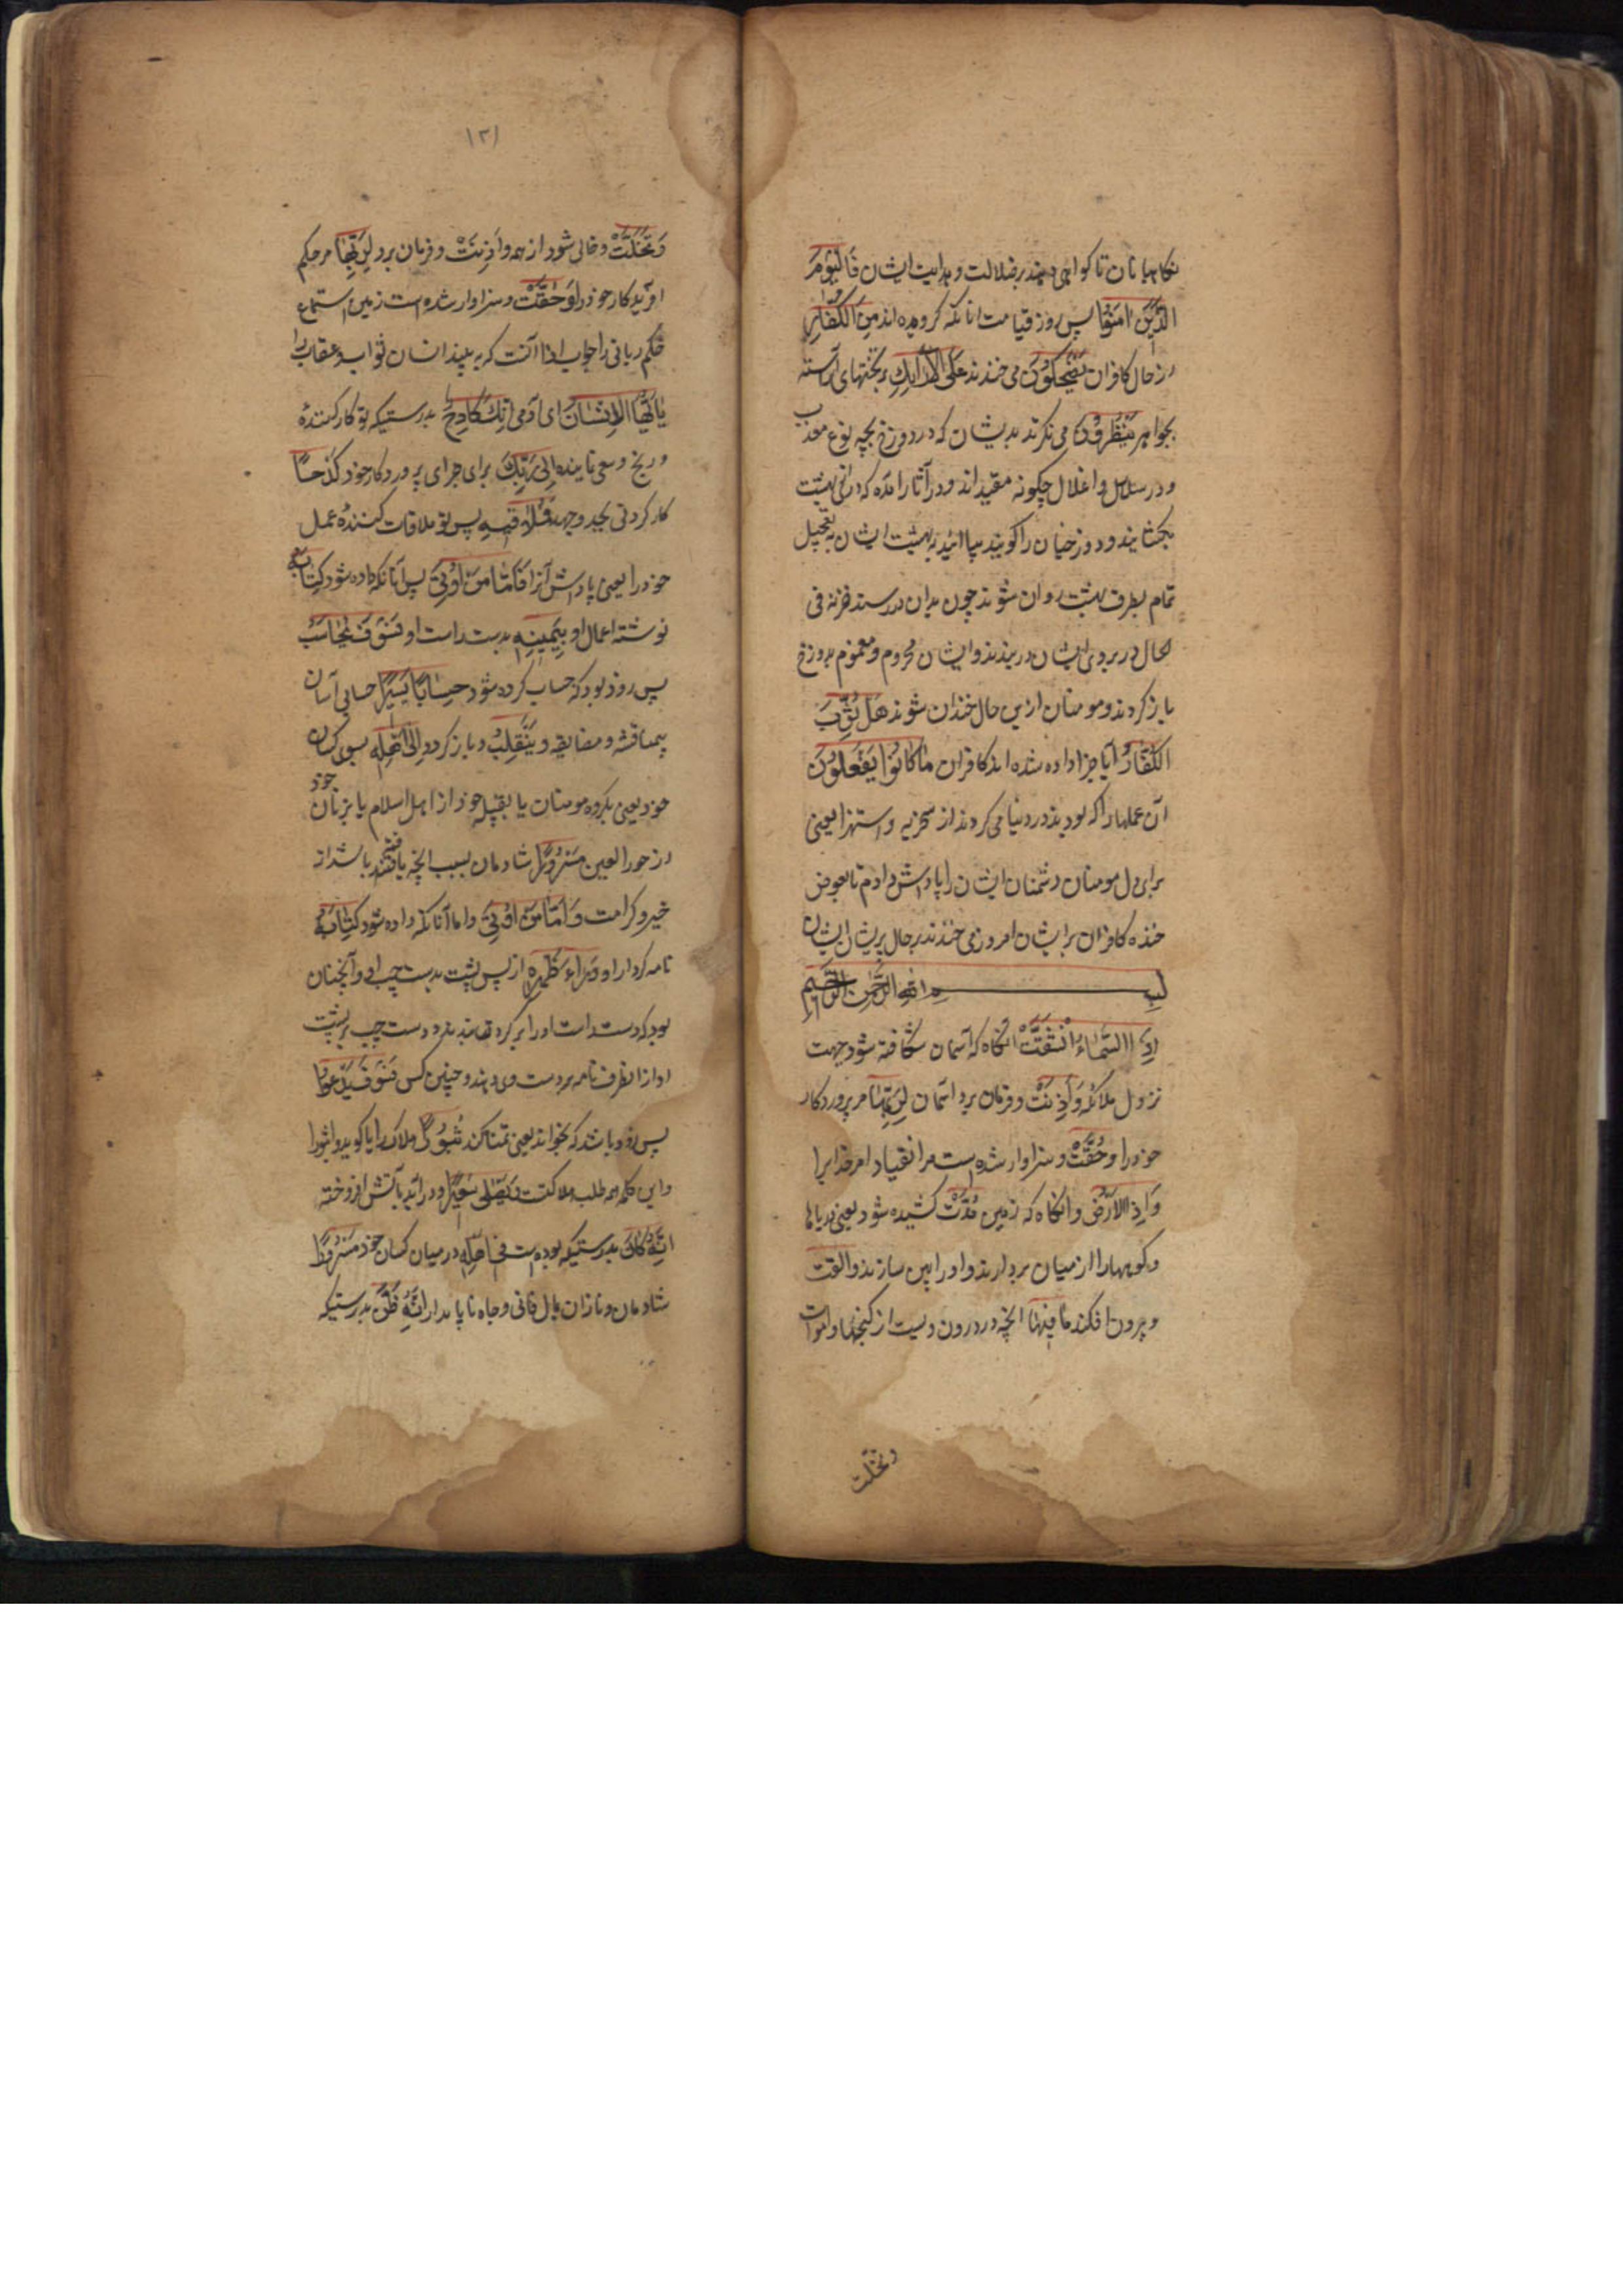 نکاهبانان تا کواهی دهند بر ضلالت و هدایت ایشان فَالْیَوْمَ
الَّذِیْنَ اٰمَنُوْا پس روز قیامت انانکه کرویده اند مِنَ الْکُفَّارِ
از حال کافران یَضْحَکُوْنَ می خندند عَلَی الْاَرَآئِکِ بر تختهای آراسته
بجواهر یَنْظُرُوْنَ می نکرند بدیشان که در دوزخ بچه نوع معذب
و در سلاسل و اغلال چکونه مقیداند و در آثار آمده که دری بهشت
بکشایند و دوزخیان را کویند بیائید به بهشت ایشان بتعجیل
تمام بطرف بهشت روان شوند چون بدان در رسند خزنه فی
الحال در بروی ایشان در بندند و ایشان محروم و مغموم بدوزخ
باز کردند و مومنان ازین حال خندان شوند هَلْ ثُوِّبَ
الْکُفَّارُ آیا جزا داده شده اند کافران مَا کَانُوْا یَفْعَلُوْنَ
آن عملها را که بودند در دنیا می کردند از سخریه و استهزا یعنی
برای دل مومنان دشمنان ایشان را پاداش دادم تا بعوض
خنده کافران بر ایشان امروز می خندند بر حال پریشان ایشان
بسم الله الرحمن الرحیم
اِذَا السَّمَآءُ انْشَقَّتْ انکاه که آسمان شکافته شود جهت
نزول ملائکه وَاَذِنَتْ و فرمان برد اسمان لِرَبِّهَا مر پروردکار
خود را وَحُقَّتْ و سزاوار شده است مر انقیاد امر خدایرا
وَاِذَا الْاَرْضُ و انکاه که زمین مُدَّتْ کشیده شود یعنی دریاها
و کوهها را از میان بردارند و او را پهن سازند وَاَلْقَتْ
و بیرون افکند مَا فِیْهَا انچه در درون ویست از کنجها و اموات
وتخلت
۱۳۱
وَتَخَلَّتْ و خالی شود از همه وَاَذِنَتْ و فرمان برد لِرَبِّهَا مر حکم
افریدکار خود را وَحُقَّتْ و سزاوار شده است زمین استماع
حکم ربانی را جواب اذا آنست که به بیند انسان ثواب و عقاب را
یٰاَیُّهَا الْاِنْسَانُ ای آدمی اِنَّکَ کَادِحٌ بدرستیکه تو کار کننده
و رنج و سعی نماینده اِلٰی رَبِّکَ برای جزای پروردکار خود کَدْحًا
کار کردنی بجد و جهد فَمُلٰقِیْهِ پس تو ملاقات کننده عمل
خود را یعنی پاداش آنرا فَاَمَّا مَنْ اُوْتِیَ پس آنانکه داده شود کِتَابَهُ
نوشته اعمال او بِیَمِیْنِهٖ بدست راست او فَسَوْفَ یُحَاسَبُ
پس زود بود که حساب کرده شود حِسَابًا یَسِیْرًا حسابی آسان
بیمناقشه و مضایقه وَیَنْقَلِبُ و باز کردد اِلٰی اَهْلِهٖ بسوی کسان
خود یعنی بکروه مومنان یا بقبیله خود از اهل اسلام یا بزنان خود
از حور العین مَسْرُوْرًا شادمان بسبب انچه یافته باشد از
خیر و کرامت وَاَمَّا مَنْ اُوْتِیَ و اما آنانکه داده شود کِتَابَهُ
نامه کردار او وَرَآءَ ظَهْرِهٖ از پس پشت بدست چپ او و آنچنان
بود که دست راست او را بر کردن بندند و دست چپ بر پشت
او از انطرف نامه بر دست وی دهند و چنین کس فَسَوْفَ یَدْعُوْا
پس زود باشد که بخواند یعنی تمنا کند ثُبُوْرًا هلاک را یا کوید واثبورا
و این کلمه طلب هلاکت وَیَصْلٰی سَعِیْرًا و در آید بآتش افروخته
اِنَّهُ کَانَ بدرستیکه بوده است فِیْ اَهْلِهٖ در میان کسان خود مَسْرُوْرًا
شادمان و نازان بمال فانی و جاه ناپایدار اِنَّهُ ظَنَّ بدرستیکه